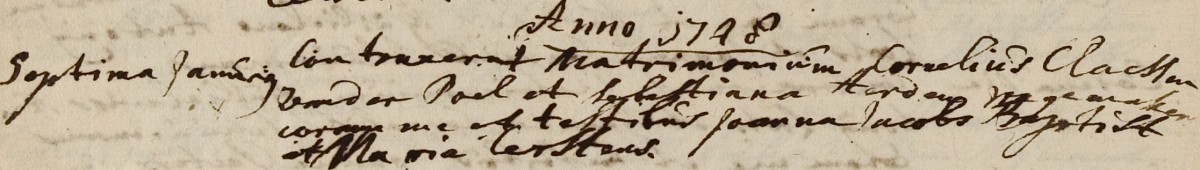 Anno 1748
Septima Januarij Contraxerunt Matrimonium Cornelius Claessen
vander Poel et Sebastiana
coram me et testibus Joanna Jacobs Baptist
et Maria Kerstens.